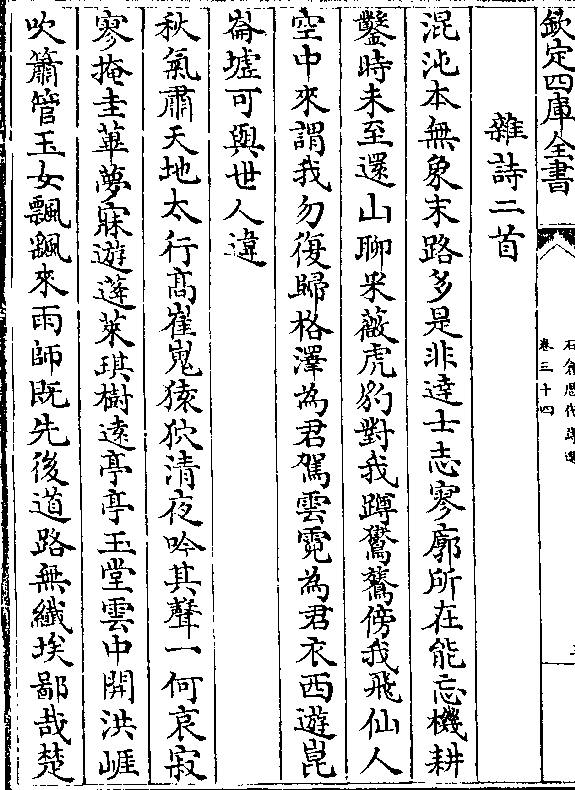 欽定四庫全書
石倉歷代詩選
卷三十四
雜詩二首
混沌本無象末路多是非達士志寥廓所在能忘機耕
鑿時未至還山聊采薇虎豹對我蹲鸑鷟傍我飛仙人
空中來謂我勿復歸格澤為君駕雲霓為君衣西遊崑
崙墟可與世人違
秋氣肅天地太行高崔嵬猿狖清夜吟其聲一何哀寂
寥掩圭蓽夢寐遊蓬萊琪樹遠亭亭玉堂雲中開洪崖
吹簫管玉女飄颻來雨師既先後道路無纖埃鄙哉楚